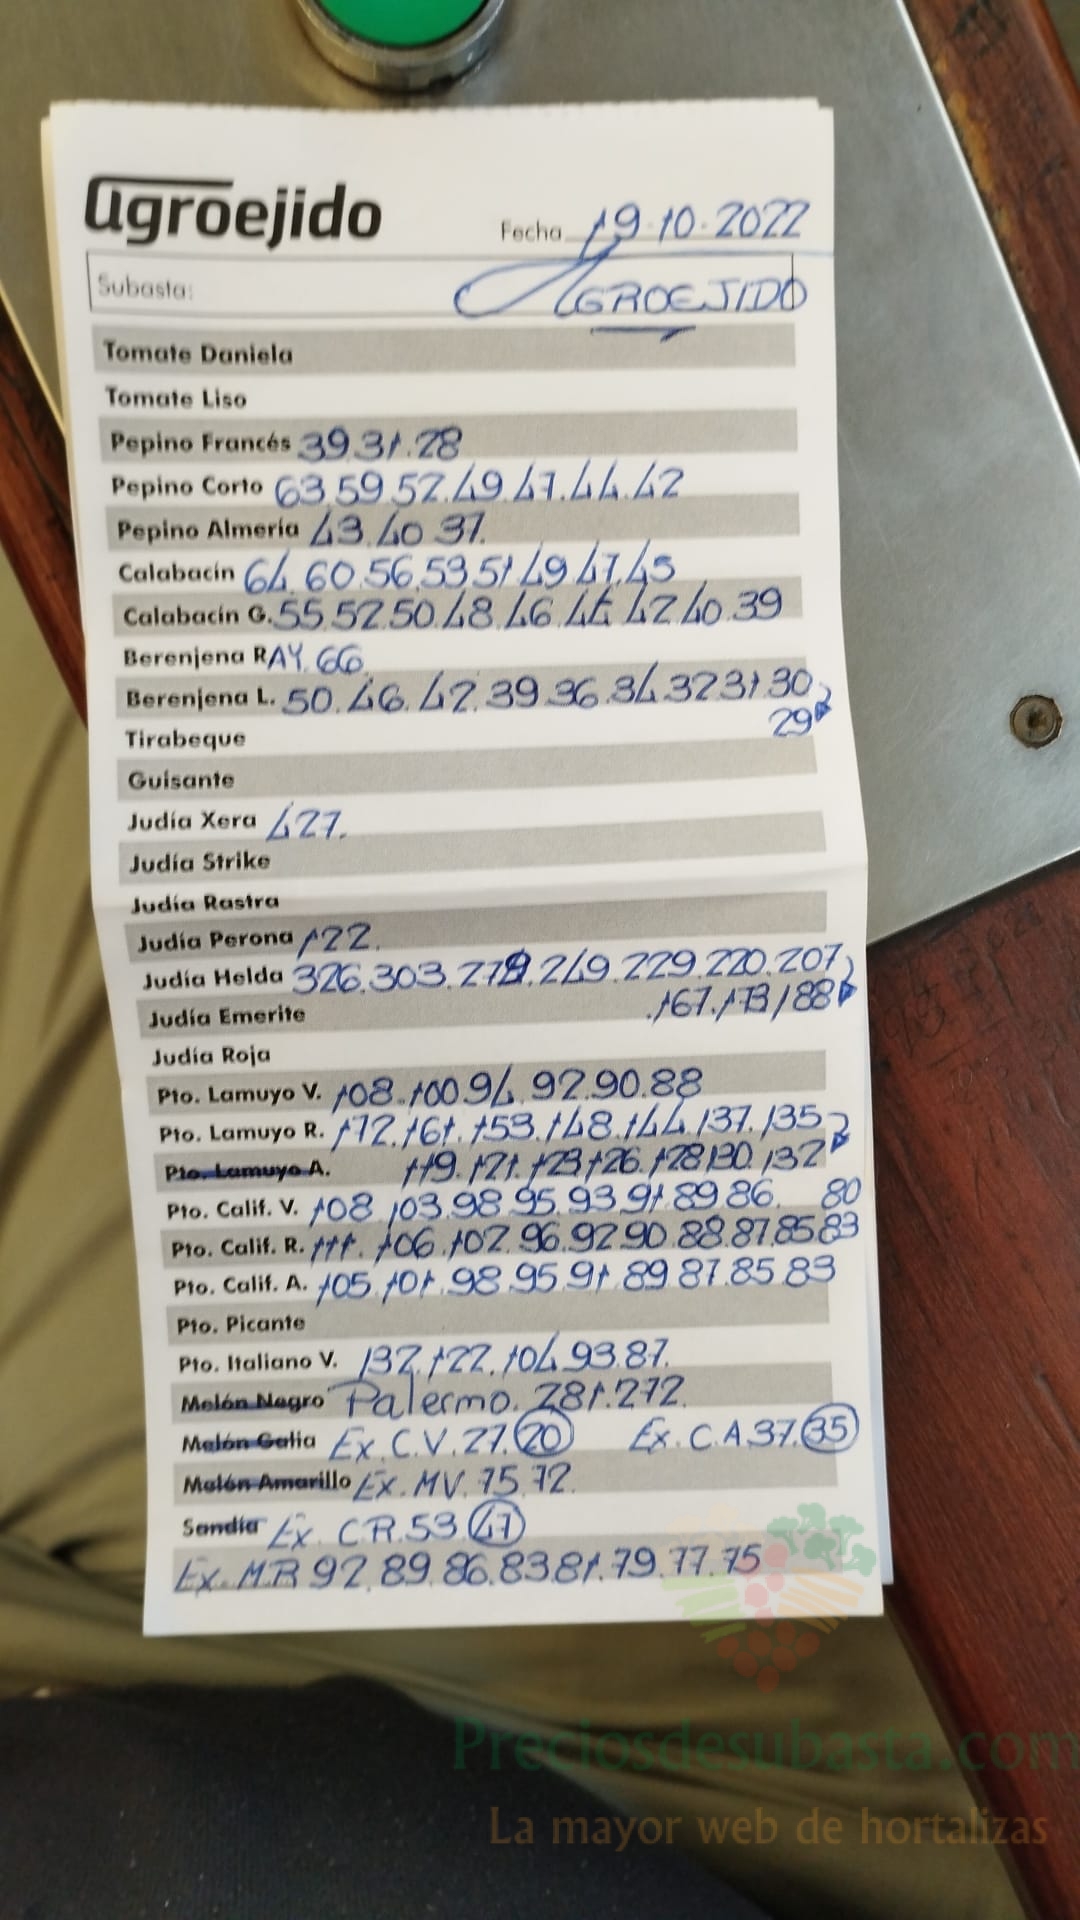 agroejido
Fecha 19-10-2022
Subasta: AGROEJIDO
Tomate Daniela
Tomate Liso
Pepino Francés 39.31.28
Pepino Corto 63.59.52.49.47.44.42
Pepino Almería 43.40.37.
Calabacín 64.60.56.53.51.49.47.45
Calabacín G. 55.52.50.48.46.44.42.40.39
Berenjena RAY. 66
Berenjena L. 50.46.42.39.36.34.32.31.30
29
Tirabeque
Guisante
Judía Xera 427.
Judía Strike
Judía Rastra
Judía Perona 122.
Judía Helda 326.303.279.249.229.220.207
.167.173/188
Judía Emerite
Judía Roja
Pto. Lamuyo V. 108.100.94.92.90.88
Pto. Lamuyo R. 172.161.153.148.144.137.135
Pto. Lamuyo A. 119.121.123.126.128.130.132
Pto. Calif. V. 108.103.98.95.93.91.89.86. 80
Pto. Calif. R. 111.106.102.96.92.90.88.87.85.83
Pto. Calif. A. 105.101.98.95.91.89.87.85.83
Pto. Picante
Pto. Italiano V. 132.122.104.93.87.
Melón Negro Palermo. 281.272.
Melón Galia Ex. C.V. 27.20 Ex. C.A 37.35
Melón Amarillo Ex. MV. 75.72.
Sandía Ex. C.R. 53.47
Ex. M.R 92.89.86.83.81.79.77.75
Preciosdesubasta.com
La mayor web de hortalizas